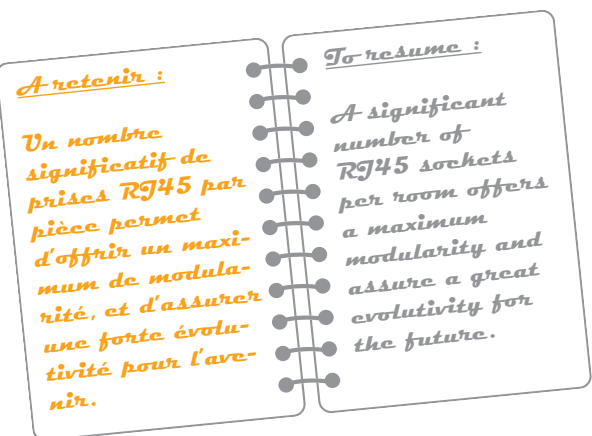 A retenir :
Un nombre
significatif de
prises RJ45 par
pièce permet
d'offrir un maxi-
mum de modula-
rité, et d'assurer
une forte évolu-
tivité pour l'ave-
nir.
To resume :
A significant
number of
RJ45 sockets
per room offers
a maximum
modularity and
assure a great
evolutivity for
the future.